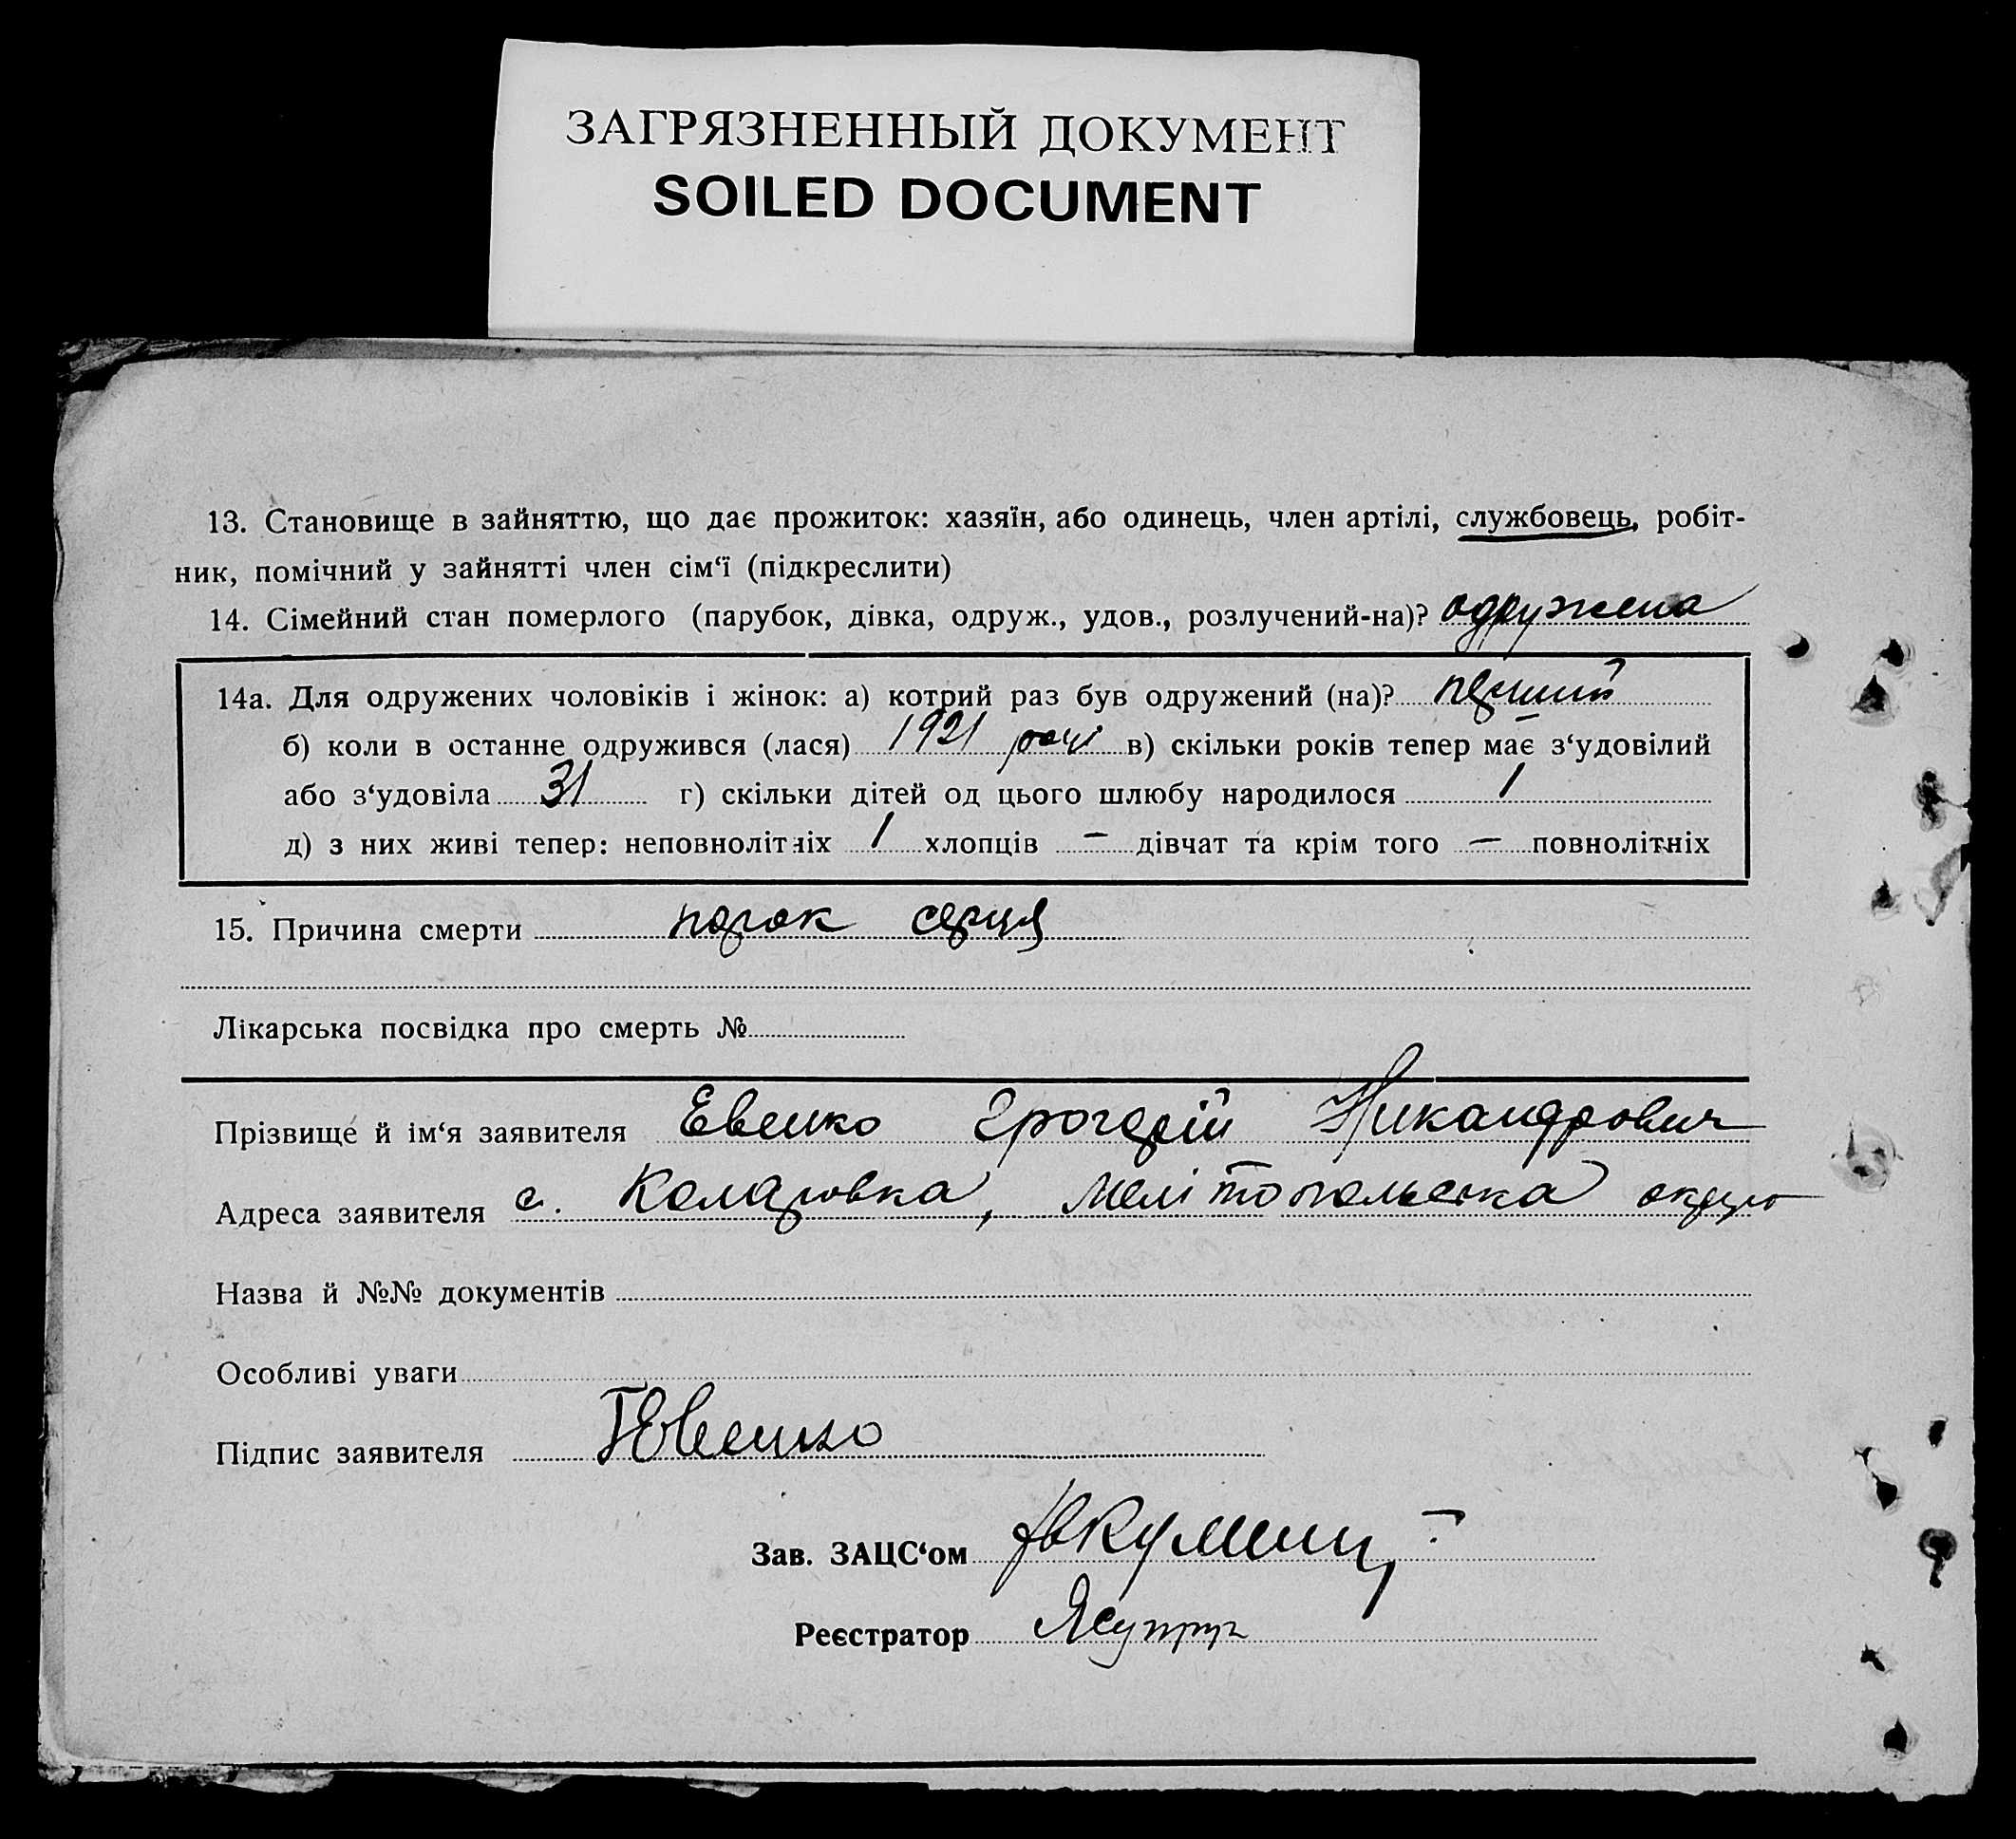 ЗАГРЯЗНЕННЫЙ ДОКУМЕНТ
SOILED DOCUMENT
13. Становище в зайняттю, що дає прожиток: хазяїн, або одинець, член артілі, службовець, робіт-
ник, помічний у зайнятті член сім‘ї (підкреслити)
14. Сімейний стан померлого (парубок, дівка, одруж., удов., розлучений-на)? одружена
14а. Для одружених чоловіків і жінок: а) котрий раз був одружений (на)? перший
б) коли в останне одружився (лася) 1921 році в) скільки років тепер має з‘удовілий
або з‘удовіла 31 г) скільки дітей од цього шлюбу народилося 1
д) з них живі тепер: неповнолітніх 1 хлопців — дівчат та крім того — повнолітніх
15. Причина смерти порок серця
Лікарська посвідка про смерть №
Прізвище й ім‘я заявителя Евенко Григорій Никандрович
Адреса заявителя с. Коларовка, Мелітопольська округа
Назва й №№ документів
Особливі уваги
Підпис заявителя ГЕвенко
Зав. ЗАЦС‘ом
Реєстратор